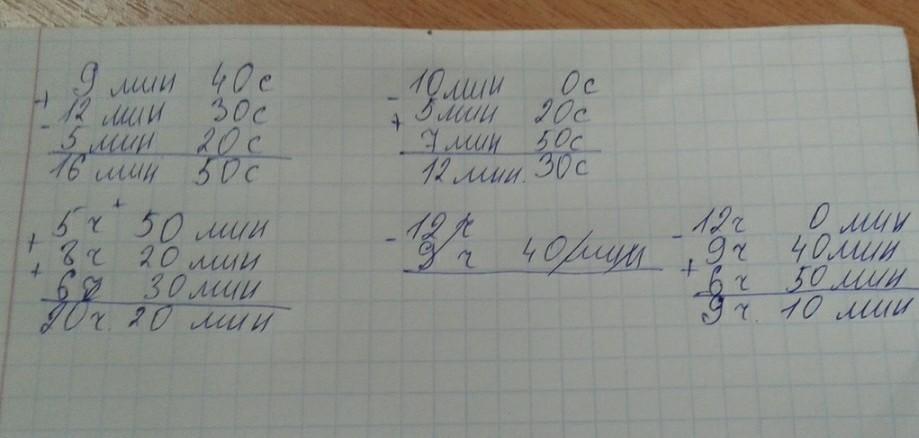 9 мин 40с
+ 12 мин 30с
- 5 мин 20с
16 мин 50с
10мин 0с
- 5мин 20с
+ 7мин 50с
12мин. 30с
5ч + 50 мин
+ 8ч 20 мин
+ 6ч 30мин
20ч. 20 мин
12ч
- 9ч 40мин
12ч 0 мин
- 9ч 40мин
+ 6ч 50мин
9ч. 10 мин